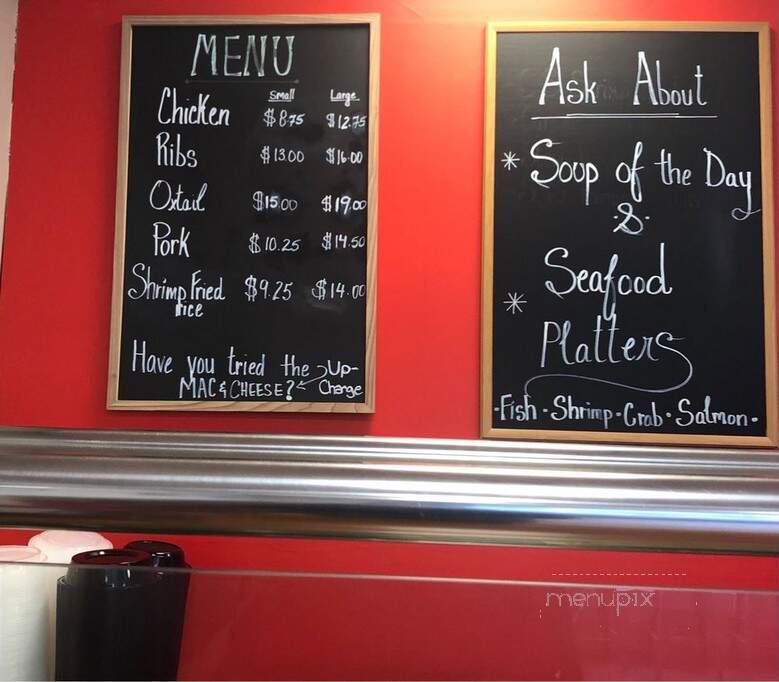 MENU
Small Large
Chicken $8.75 $12.75
Ribs $13.00 $16.00
Oxtail $15.00 $19.00
Pork $10.25 $14.50
Shrimp Fried $9.25 $14.00
rice
Have you tried the Up-
MAC & CHEESE? Change
Ask About
* Soup of the Day
&
Seafood
* Platters
·Fish·Shrimp·Crab·Salmon·
menupix